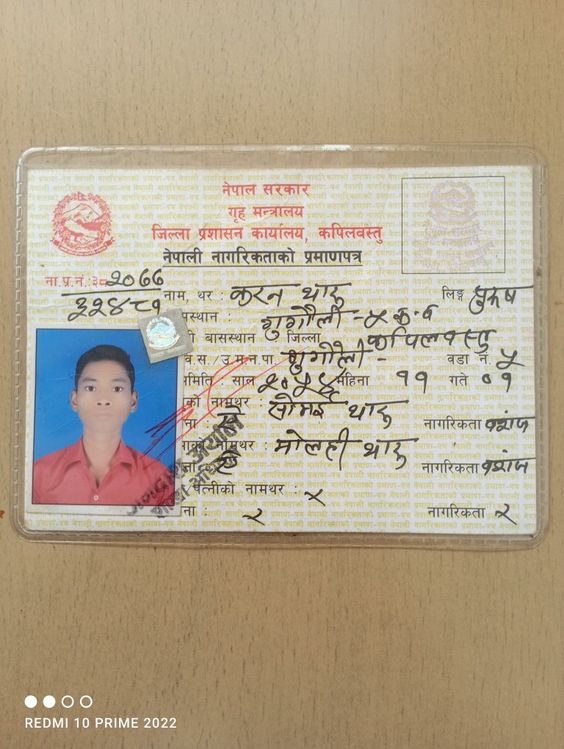 नेपाल सरकार
गृह मन्त्रालय
जिल्ला प्रशासन कार्यालय, कपिलवस्तु
नेपाली नागरिकताको प्रमाणपत्र
ना.प्र.नं.:३८२०६६
३२४८१
नाम, थर : करन थारु लिङ्ग पुरुष
स्थान : गुगौली - ५ क.व
बासस्थान : जिल्ला कपिलवस्तु
व.स./उ.म.न.पा. गुगौली - वडा नं. ५
मिति: साल २०५४ महिना ११ गते ०१
को नामथर : सोमई थारु
ना: नागरिकता वंशज
नामथर : मोलही थारु
नागरिकता वंशज
पत्नीको नामथर : र
ना : र नागरिकता र
REDMI 10 PRIME 2022